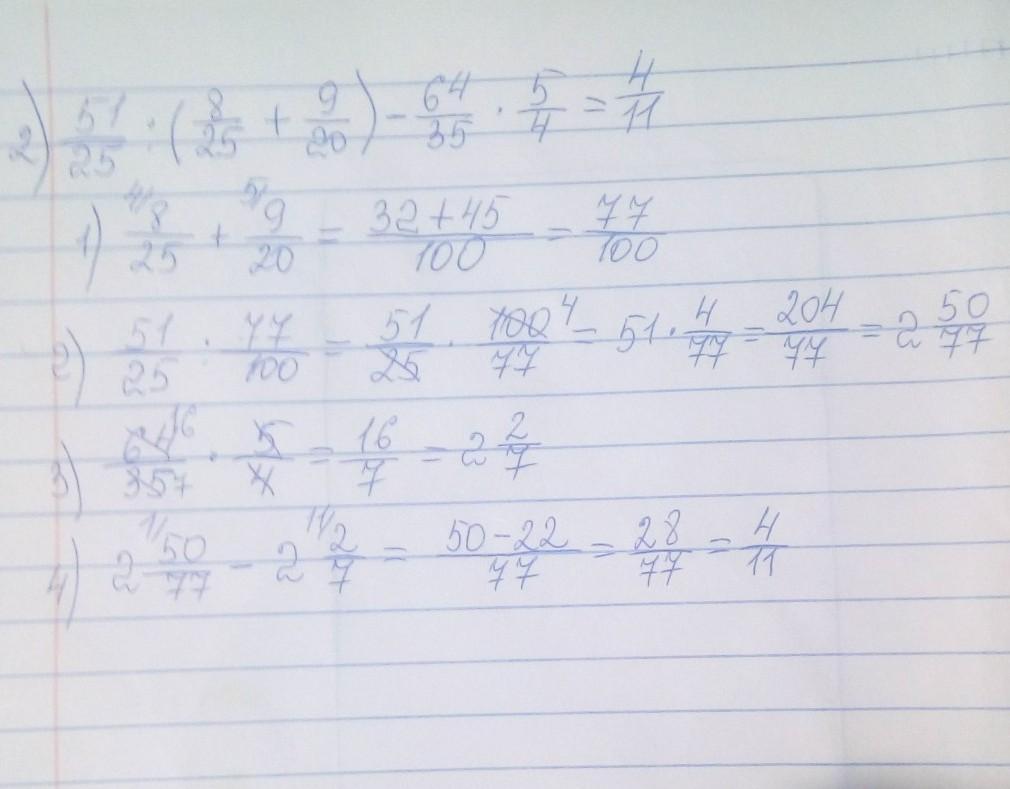 2) 51/25 : (8/25 + 9/20) - 64/35 · 5/4 = 4/11
1) 4/ 8/25 + 5/ 9/20 = 32+45/100 = 77/100
2) 51/25 : 77/100 = 51/25 · 100 4/77 = 51 · 4/77 = 204/77 = 2 50/77
3) 64 16/35 7 · 5/4 = 16/7 = 2 2/7
4) 2 1/ 50/77 - 2 11/ 2/7 = 50-22/77 = 28/77 = 4/11